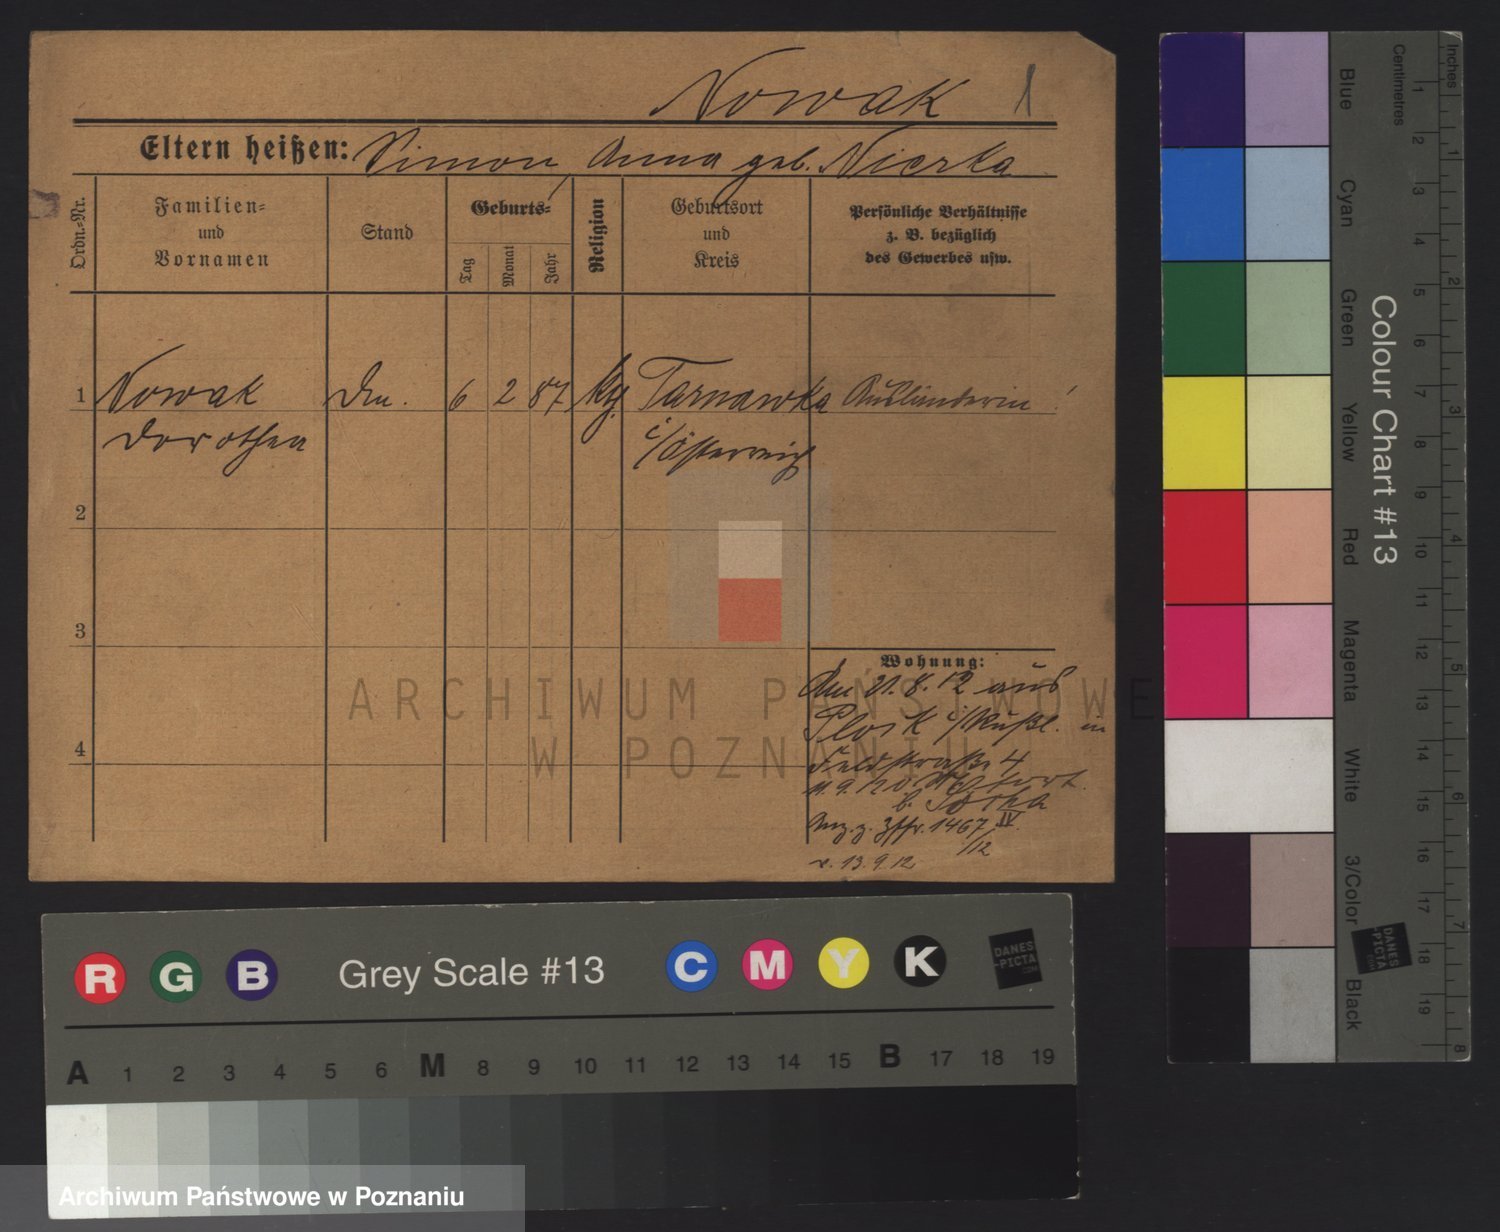 Nowak 1
Eltern heißen: Simon, Anna geb. Nierka
Ordn.=Nr.
Familien=
und
Vornamen
Stand
Geburts=
Tag
Monat
Jahr
Religion
Geburtsort
und
Kreis
Persönliche Verhältnisse
z. B. bezüglich
des Gewerbes usw.
1 Nowak 6 2 87 Tarnawka Ausländerin!
Dorothea i/Österreich
2
3
4
Wohnung:
21.8.12 aus
i/Rußl. in
Feldstraße 4
b. Sotka
1467 IV
/12
v. 13.9.12
ARCHIWUM PAŃSTWOWE
W POZNANIU
R G B Grey Scale #13 C M Y K
DANES
-PICTA
.COM
A 1 2 3 4 5 6 M 8 9 10 11 12 13 14 15 B 17 18 19
Archiwum Państwowe w Poznaniu
Colour Chart #13
Blue
Cyan
Green
Yellow
Red
Magenta
White
3/Color
Black
Centimetres
1 2 3 4 5 6 7 8 9 10 11 12 13 14 15 16 17 18 19
Inches
1 2 3 4 5 6 7 8
DANES
-PICTA
.COM